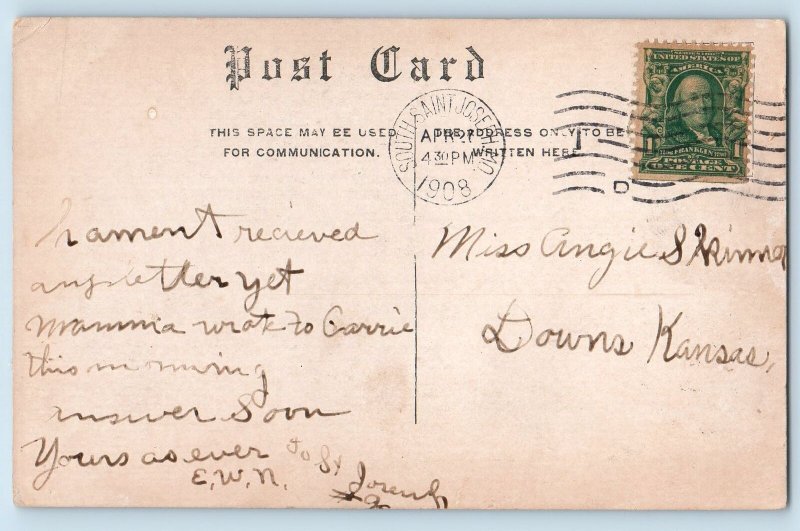 Post Card
THIS SPACE MAY BE USED
FOR COMMUNICATION.
THE ADDRESS ONLY TO BE
WRITTEN HERE
SOUTH SAINT JOSEPH, MO.
APR 27
4 30 PM
1908
UNITED STATES OF
AMERICA
FRANKLIN
POSTAGE
1 ONE CENT 1
D
I ament recieved
any letter yet
Mamma wrote to Carrie
this morning
answer Soon
Yours as ever
E.W.N.
to St
Joseph
Miss Angie Skinner
Downs Kansas,